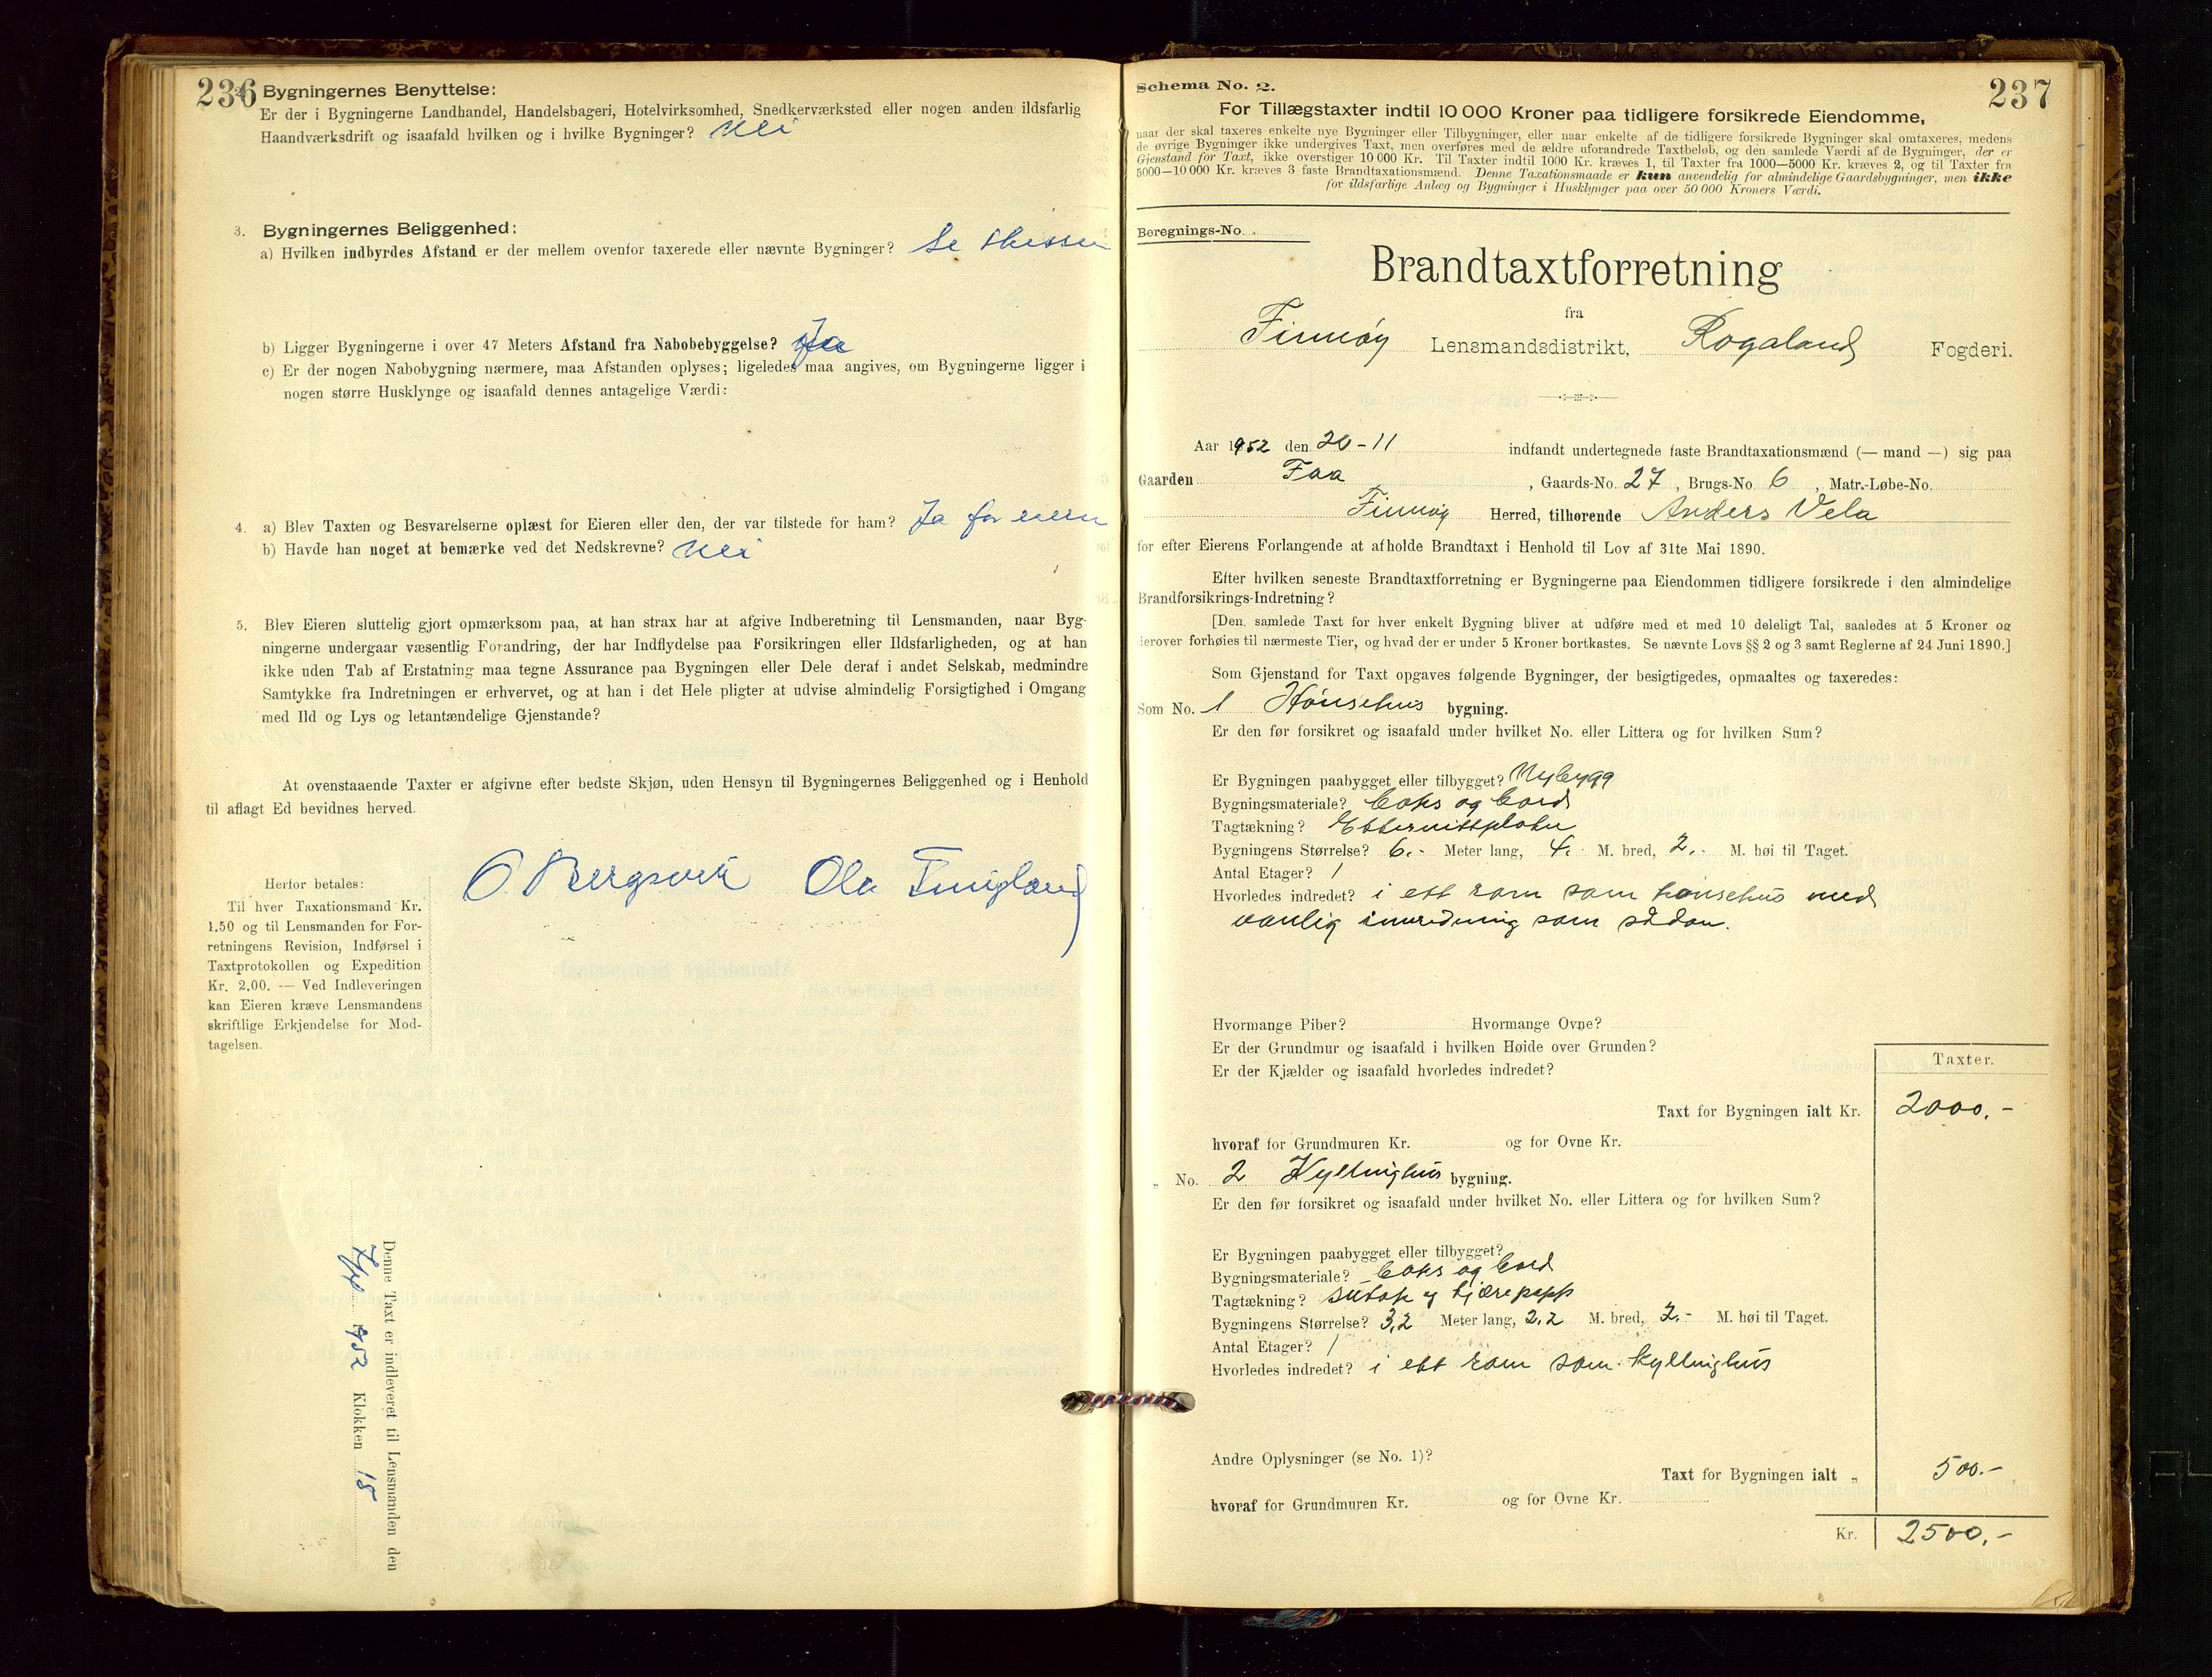 236
2. Bygningernes Benyttelse:
Er der i Bygningerne Landhandel, Handelsbageri, Hotelvirksomhed, Snedkerværksted eller nogen anden ildsfarlig
Haandværksdrift og isaafald hvilken og i hvilke Bygninger? Nei
3. Bygningernes Beliggenhed:
a) Hvilken indbyrdes Afstand er der mellem ovenfor taxerede eller nævnte Bygninger? Se skissen
b) Ligger Bygningerne i over 47 Meters Afstand fra Nabobebyggelse? Ja
c) Er der nogen Nabobygning nærmere, maa Afstanden oplyses; ligeledes maa angives, om Bygningerne ligger i
nogen større Husklynge og isaafald dennes antagelige Værdi:
4. a) Blev Taxten og Besvarelserne oplæst for Eieren eller den, der var tilstede for ham? Ja for eieren
b) Havde han noget at bemærke ved det Nedskrevne? Nei
5. Blev Eieren sluttelig gjort opmærksom paa, at han strax har at afgive Indberetning til Lensmanden, naar Byg-
ningerne undergaar væsentlig Forandring, der har Indflydelse paa Forsikringen eller Ildsfarligheden, og at han
ikke uden Tab af Erstatning maa tegne Assurance paa Bygningen eller Dele deraf i andet Selskab, medmindre
Samtykke fra Indretningen er erhvervet, og at han i det Hele pligter at udvise almindelig Forsigtighed i Omgang
med Ild og Lys og letantændelige Gjenstande?
At ovenstaaende Taxter er afgivne efter bedste Skjøn, uden Hensyn til Bygningernes Beliggenhed og i Henhold
til aflagt Ed bevidnes herved.
O. Bergsvik Ola
Herfor betales:
Til hver Taxationsmand Kr.
1.50 og til Lensmanden for For-
retningens Revision, Indførsel i
Taxtprotokollen og Expedition
Kr. 2,00. — Ved Indleveringen
kan Eieren kræve Lensmandens
skriftlige Erkjendelse for Mod-
tagelsen.
Denne Taxt er indleveret til Lensmanden den
1952 Klokken 15
237
Schema No. 2.
For Tillægstaxter indtil 10 000 Kroner paa tidligere forsikrede Eiendomme,
naar der skal taxeres enkelte nye Bygninger eller Tilbygninger, eller naar enkelte af de tidligere forsikrede Bygninger skal omtaxeres, medens
de øvrige Bygninger ikke undergives Taxt, men overføres med de ældre uforandrede Taxtbeløb, og den samlede Værdi af de Bygninger, der er
Gjenstand for Taxt, ikke overstiger 10 000 Kr. Til Taxter indtil 1000 Kr. kræves 1, til Taxter fra 1000—5000 Kr. kræves 2, og til Taxter fra
5000—10 000 Kr. kræves 3 faste Brandtaxationsmænd. Denne Taxationsmaade er kun anvendelig for almindelige Gaardsbygninger, men ikke
for ildsfarlige Anlæg og Bygninger i Husklynger paa over 50 000 Kroners Værdi.
Beregnings-No.
Brandtaxtforretning
fra
Finnøy Lensmandsdistrikt, Rogaland Fogderi.
Aar 1952 den 20-11 indfandt undertegnede faste Brandtaxationsmænd (— mand —) sig paa
Gaarden Faa , Gaards-No. 27 , Brugs-No. 6 , Matr.-Løbe-No.
Finnøy Herred, tilhørende Anders Vela
for efter Eierens Forlangende at afholde Brandtaxt i Henhold til Lov af 31te Mai 1890.
Efter hvilken seneste Brandtaxtforretning er Bygningerne paa Eiendommen tidligere forsikrede i den almindelige
Brandforsikrings-Indretning?
[Den samlede Taxt for hver enkelt Bygning bliver at udføre med et med 10 deleligt Tal, saaledes at 5 Kroner og
derover forhøies til nærmeste Tier, og hvad der er under 5 Kroner bortkastes. Se nævnte Lovs §§ 2 og 3 samt Reglerne af 24 Juni 1890.]
Som Gjenstand for Taxt opgaves følgende Bygninger, der besigtigedes, opmaaltes og taxeredes:
Som No. 1 Hønsehus bygning.
Er den før forsikret og isaafald under hvilket No. eller Littera og for hvilken Sum?
Er Bygningen paabygget eller tilbygget? Nybygg
Bygningsmateriale? Coks og bord
Tagtækning? Etternittplater
Bygningens Størrelse? 6.- Meter lang, 4.- M. bred, 2.- M. høi til Taget.
Antal Etager? 1
Hvorledes indredet? i ett rom som hønsehus med
vanlig innredning som sådan.
Hvormange Piber? Hvormange Ovne?
Er der Grundmur og isaafald i hvilken Høide over Grunden?
Er der Kjælder og isaafald hvorledes indredet?
Taxter.
Taxt for Bygningen ialt Kr. 2000.-
hvoraf for Grundmuren Kr. og for Ovne Kr.
„ No. 2 Kyllinghus bygning.
Er den før forsikret og isaafald under hvilket No. eller Littera og for hvilken Sum?
Er Bygningen paabygget eller tilbygget?
Bygningsmateriale? Coks og bord
Tagtækning? sutak og tjærepapp
Bygningens Størrelse? 3,2 Meter lang, 2,2 M. bred, 2.- M. høi til Taget.
Antal Etager? 1
Hvorledes indredet? i ett rom som kyllinghus
Andre Oplysninger (se No. 1)?
Taxt for Bygningen ialt „ 500.-
hvoraf for Grundmuren Kr. og for Ovne Kr.
Kr. 2500.-